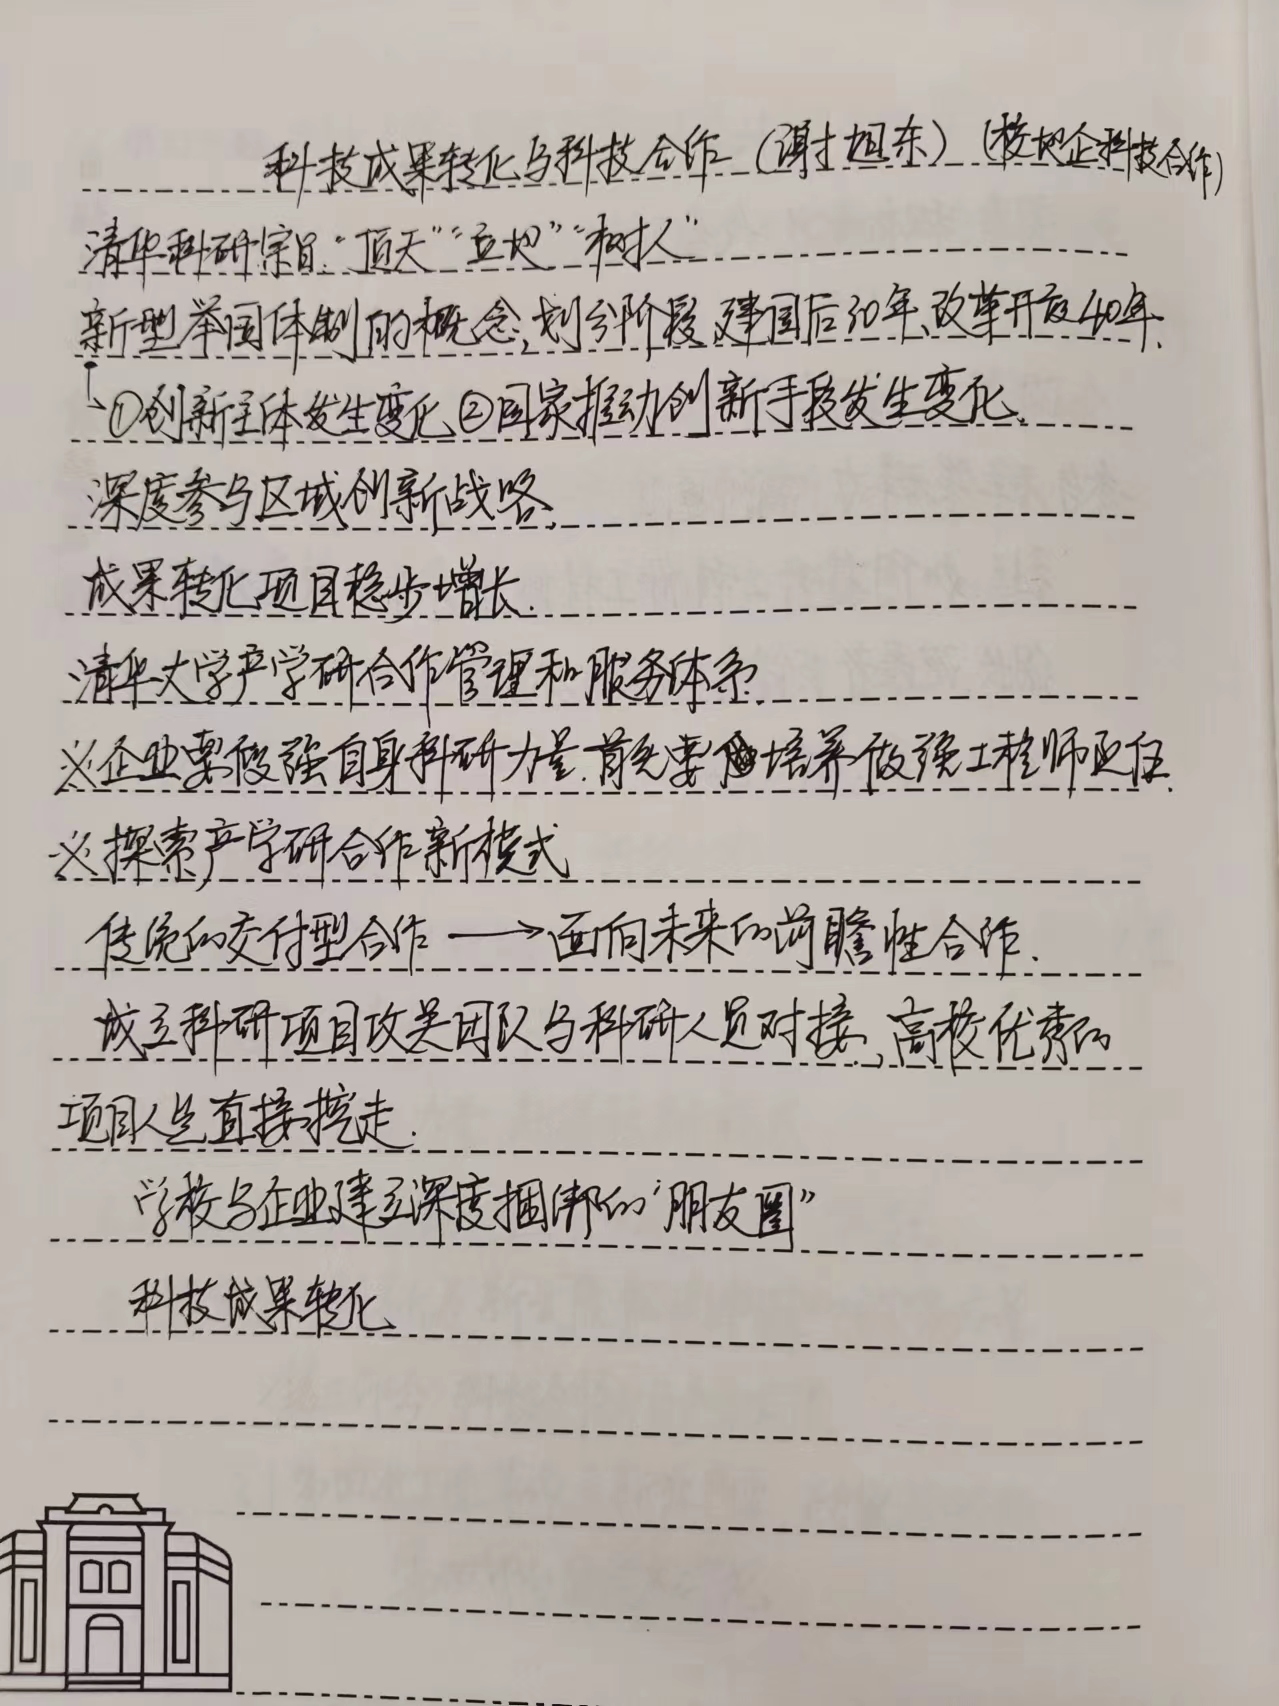 科技成果转化与科技合作（谢旭东）（校地企科技合作）
清华科研宗旨："顶天""立地""树人"
新型举国体制的概念，划分阶段，建国后30年、改革开放40年.
①创新主体发生变化 ②国家推动创新手段发生变化.
深度参与区域创新战略.
成果转化项目稳步增长.
清华大学产学研合作管理和服务体系.
※企业要做强自身科研力量.首先要培养做强工程师队伍.
※探索产学研合作新模式
传统的交付型合作 ⟶ 面向未来的前瞻性合作.
成立科研项目攻关团队与科研人员对接，高校优秀的
项目人员直接挖走.
学校与企业建立深度捆绑的"朋友圈"
科技成果转化